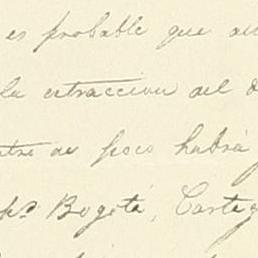 es probable que au
la estraccion del d
ntre de poco habrá
pª Bogotá, Carta